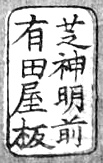 芝神明前
有田屋板